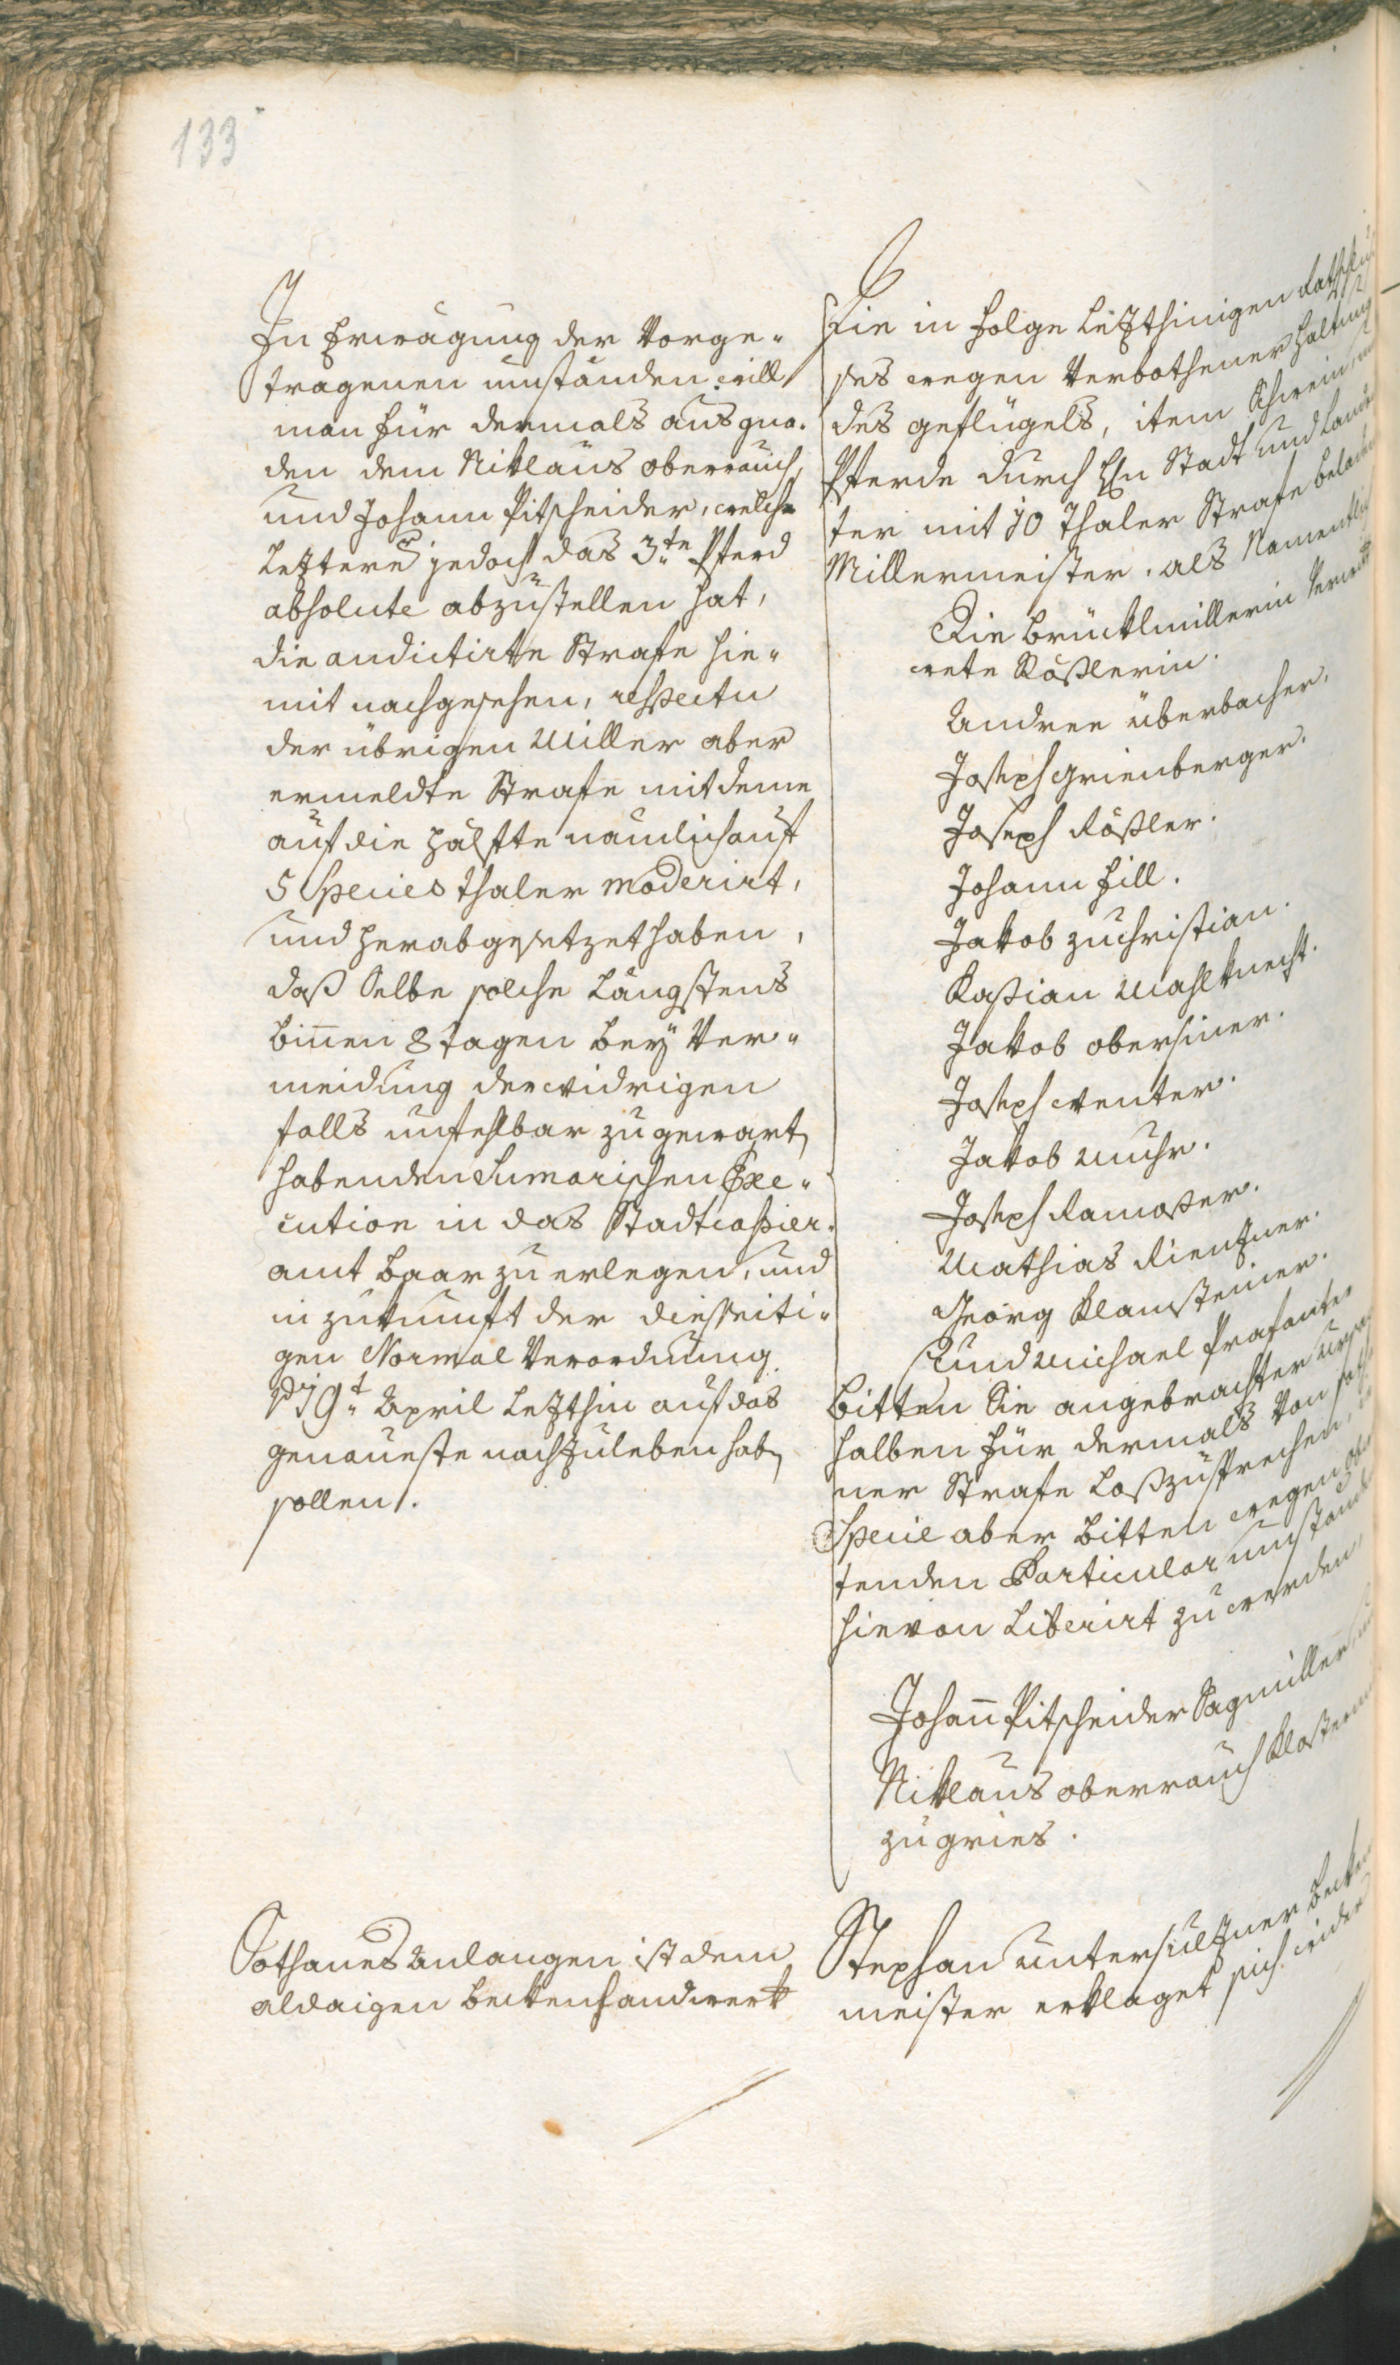 133
In Erwägung der Vorge-
tragenen umständen will
man für dermals aus gna-
den dem Niklaus oberrauch,
und Johann Pitscheider, welche
Letterer jedoch das 3te Pferd
absolute abzustellen hat,
die andictirte Strafe hie-
mit nachgesehen, respectu
der übrigen Miller aber
ermeldte Strafe mit deme
auf die Hälfte nämlich auf
5 Species thaler moderirt,
und herabgesetzet haben,
daß Selbe solche Längstens
binnen 8 tagen bey Ver-
meidung der widrigen
falls unfehlbar zu gewarten
habenden Sumarischen Exe-
cution in das Stadtcassier-
amt baar zu erlegen, und
in zukunft der diesseiti-
gen Normal Verordnung
19t April Letzthin auf das
genaueste nachzuleben haben
sollen.
Die in Folge Letzthinigen
ses wegen Verbothener Haltung
des geflügels, item Schwein
Pferde durch Hn Stadt und Land
ter mit 10 Thaler Strafe
Millermeister. als Namentlich
Die brücklmillerin
wete Rößlerin.
Andree überbacher,
Joseph grienberger.
Joseph Rößler.
Johann Fill.
Jakob zuchristian.
Kassian Mahlknecht.
Jakob obersiner.
Joseph Wenter.
Jakob Muhr.
Joseph Ramoser.
Mathias Rienzner.
Georg Klamsteiner.
Und Michael Prafanter
bitten Sie angebrachter
halben für dermals Von
ner Strafe Loßzusprechen,
Specie aber bitten wegen
tenden Particular umständen
hievon Liberirt zu werden,
Johann Pitscheider Sagmüller
Niklaus oberrauch
zu gries.
Sothanes Anlangen ist dem
aldaigen beckenhandwerk
Stephan untersulzner
meister erklaget sich wider